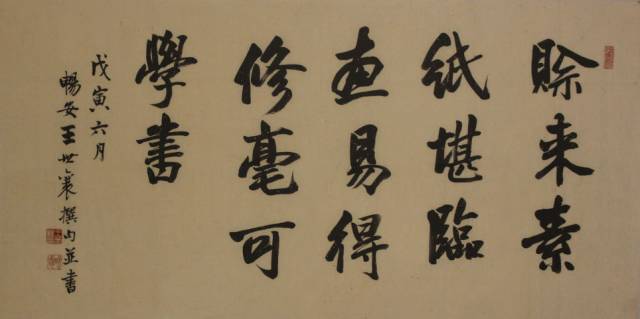 賒来素
紙堪臨
画易得
修毫可
學書
戊寅六月
暢安王世襄撰句並書